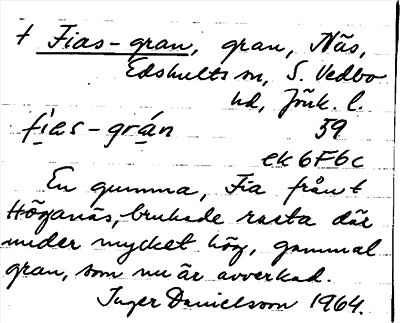 † Fias-gran, gran, Näs,
Edshults sn, S. Vedbo
hd, Jönk. l.
fìas-grán 59
ek 6F6c
En gumma, Fia från †
Höganäs, brukade rasta där
under mycket hög, gammal
gran, som nu är avverkad.
Inger Danielsson 1964.